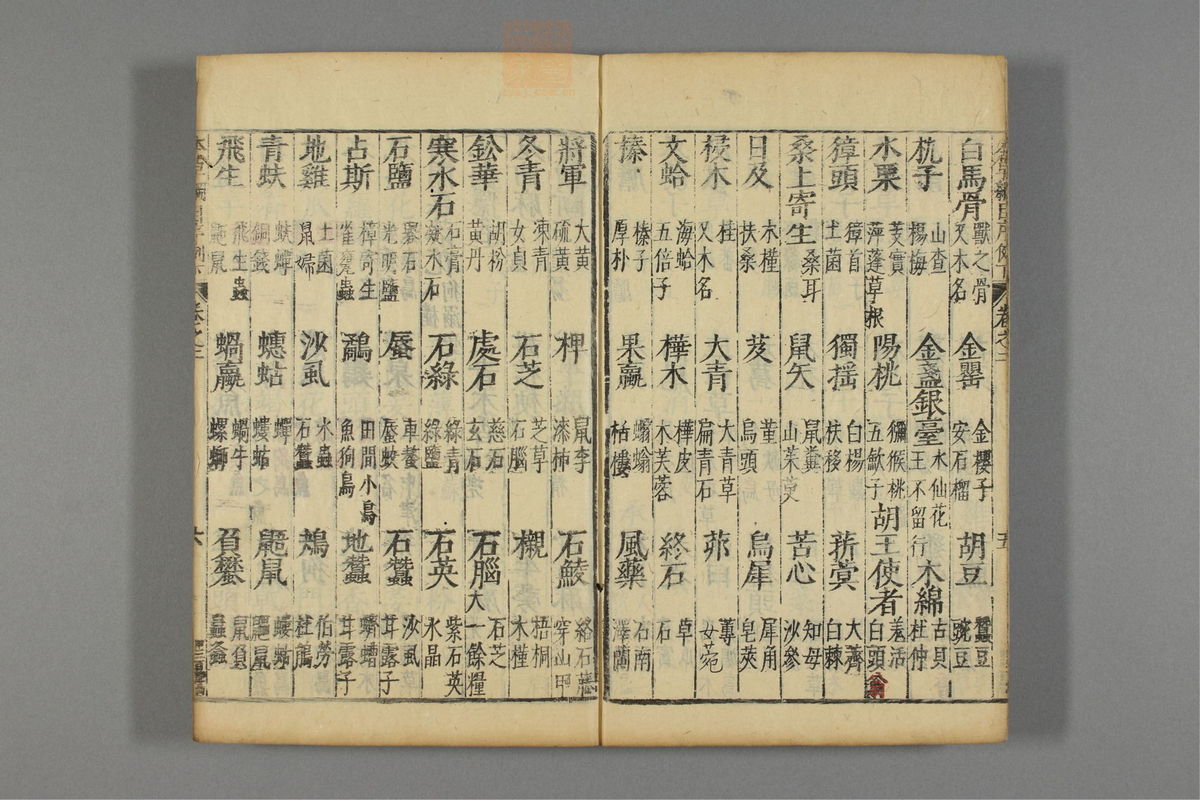 白馬骨 獸之骨 又木名 金罌 金櫻子 安石榴 胡豆 蠶豆 豌豆
杬子 山查 楊梅 金盞銀臺 水仙花 王不留行 木綿 古貝 杜仲
水栗 芰實 萍蓬草根 陽桃 獼猴桃 五斂子 胡王使者 羌活 白頭翁
獐頭 獐首 土菌 獨搖 白楊 扶栘 菥蓂 大薺 白棘
桑上寄生 桑耳 鼠矢 鼠糞 山茱萸 苦心 知母 沙參
日及 木槿 扶桑 芨 堇 烏頭 烏犀 犀角 皂莢
桂 又木名 大青 大青草 扁青石 茆 蓴 女菀
文蛤 海蛤 五倍子 樺木 樺皮 木芙蓉 終石 草 石
榛 榛子 厚朴 果蠃 蠮螉 栝樓 風藥 石南 澤蘭
將軍 大黃 硫黃 柙 鼠李 漆柿 石鯪 絡石 穿山甲
冬青 凍青 女貞 石芝 芝草 石腦 櫬 梧桐 木槿
鈆華 胡粉 黃丹 處石 慈石 玄石 石腦 石芝 大一餘糧
寒水石 石膏 凝水石 石綠 綠青 綠鹽 石英 紫石英 水晶
石鹽 光明鹽 蜃 車螯 蜃蛟 石蠶 沙虱 甘露子
占斯 樟寄生 雀甕蟲 鷸 田間小鳥 魚狗鳥 地蠶 蠐螬 甘露子
地雞 土菌 鼠婦 沙虱 水蟲 石蠶 鴂 伯勞 杜鵑
青蚨 蚨蟬 銅錢 蟪蛄 蟬 螻蛄 鼫鼠 螻蛄 鼫鼠
飛生 飛生蟲 鼯鼠 蝸蠃 蝸牛 螺螄 負蠜 鼠負 蟲螽
五
六